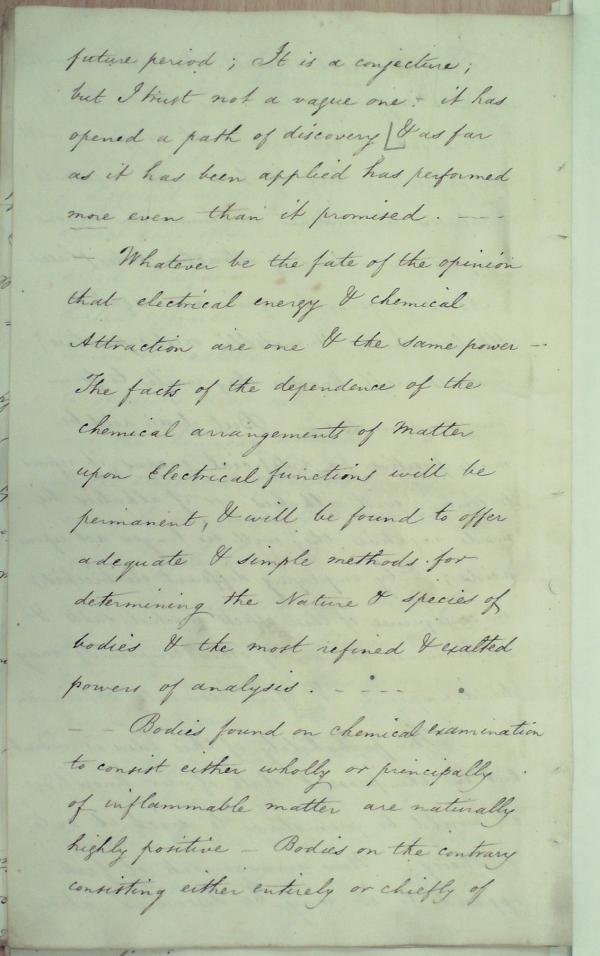 future period ; It is a conjecture ;
but I trust not a vague one :- it has
opened a path of discovery [& as far
as it has been applied has performed
more even than it promised . - - -
- Whatever be the fate of the opinion
that electrical energy & chemical
Attraction are one & the same power -
The facts of the dependence of the
chemical arrangements of Matter
upon Electrical functions will be
permanent, & will be found to offer
adequate & simple methods for
determining the Nature & species of
bodies & the most refined & exalted
powers of analysis . - - - -
- - Bodies found on chemical examination
to consist either wholly or principally
of inflammable matter are naturally
highly positive - Bodies on the contrary
consisting either entirely or chiefly of